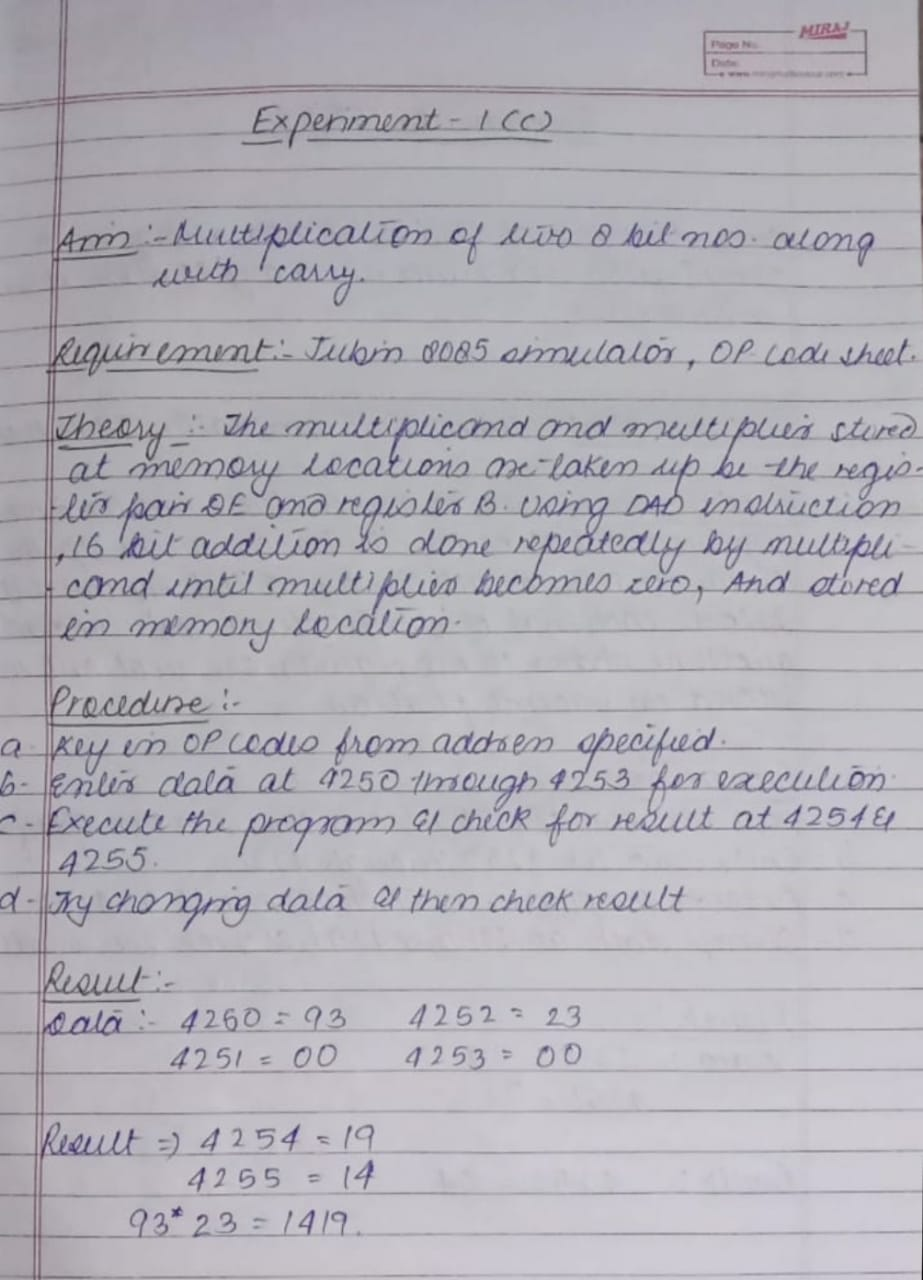 MIRAJ
Page No.
Date:
Experiment - 1 (C)
Aim :- Multiplication of two 8 bit nos. along
with carry.
Requirement :- Jubin 8085 simulator, OP code sheet.
Theory :- The multiplicand and multiplier stored
at memory locations are taken up be the regis-
ter pair DE and register B. Using DAD instruction
, 16 bit addition is done repeatedly by multipli-
cand until multiplier becomes zero, And stored
in memory location.
Procedure :-
a. Key in OP codes from address specified.
b- Enter data at 4250 through 4253 for execution.
c- Execute the program & check for result at 4254 &
4255.
d- Try changing data & then check result
Result :-
Data :- 4260 = 93 4252 = 23
4251 = 00 4253 = 00
Result => 4254 = 19
4255 = 14
93* 23 = 1419.